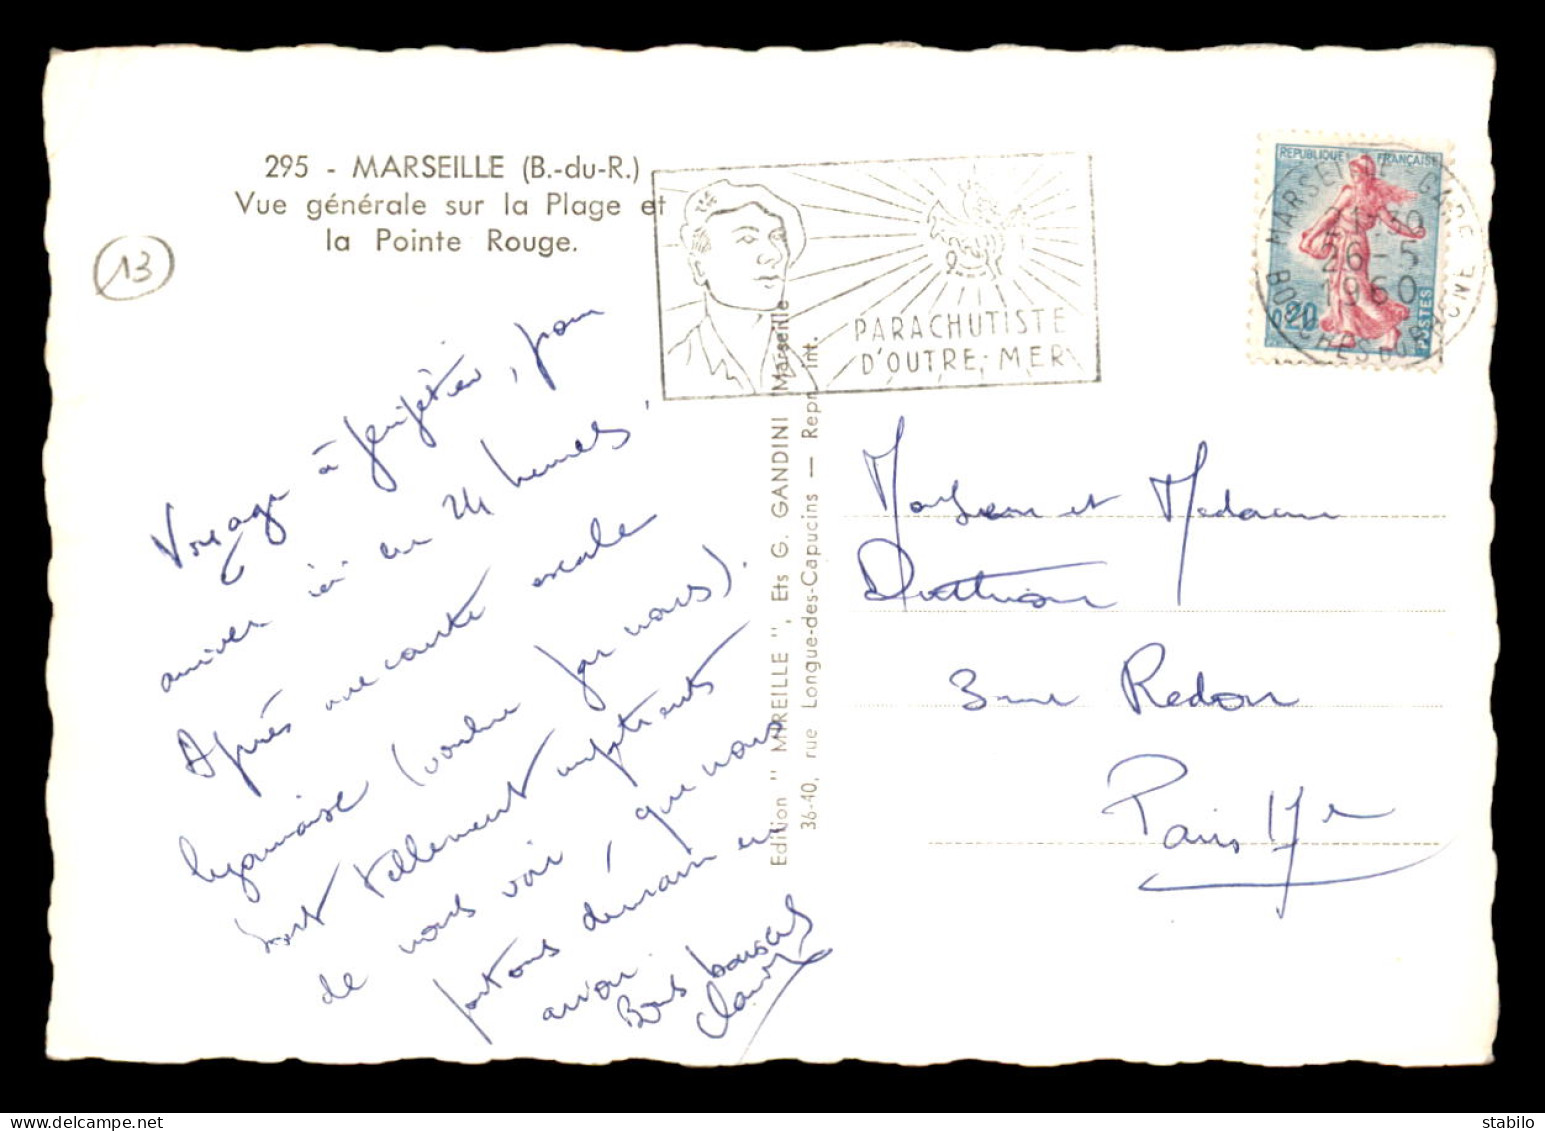 295 - MARSEILLE (B.-du-R.)
Vue générale sur la Plage et
la Pointe Rouge.
13
PARACHUTISTE
D'OUTRE-MER
REPUBLIQUE FRANÇAISE
0,20
POSTES
MARSEILLE GARE
BOUCHES DU RHONE
26-5
1960
Voyage à, pour
arriver ici en 24 heures.
Après une courte escale
lyonnaise (voulue par nous).
sont tellement
de nous voir, que nous
partons demain en
avion.
Bons baisers
Edition " MIREILLE ", Ets G. GANDINI Marseille
36-40, rue Longue-des-Capucins — Repr. int.
Monsieur et Madame
3 rue Redon
Paris 17e
stabilo